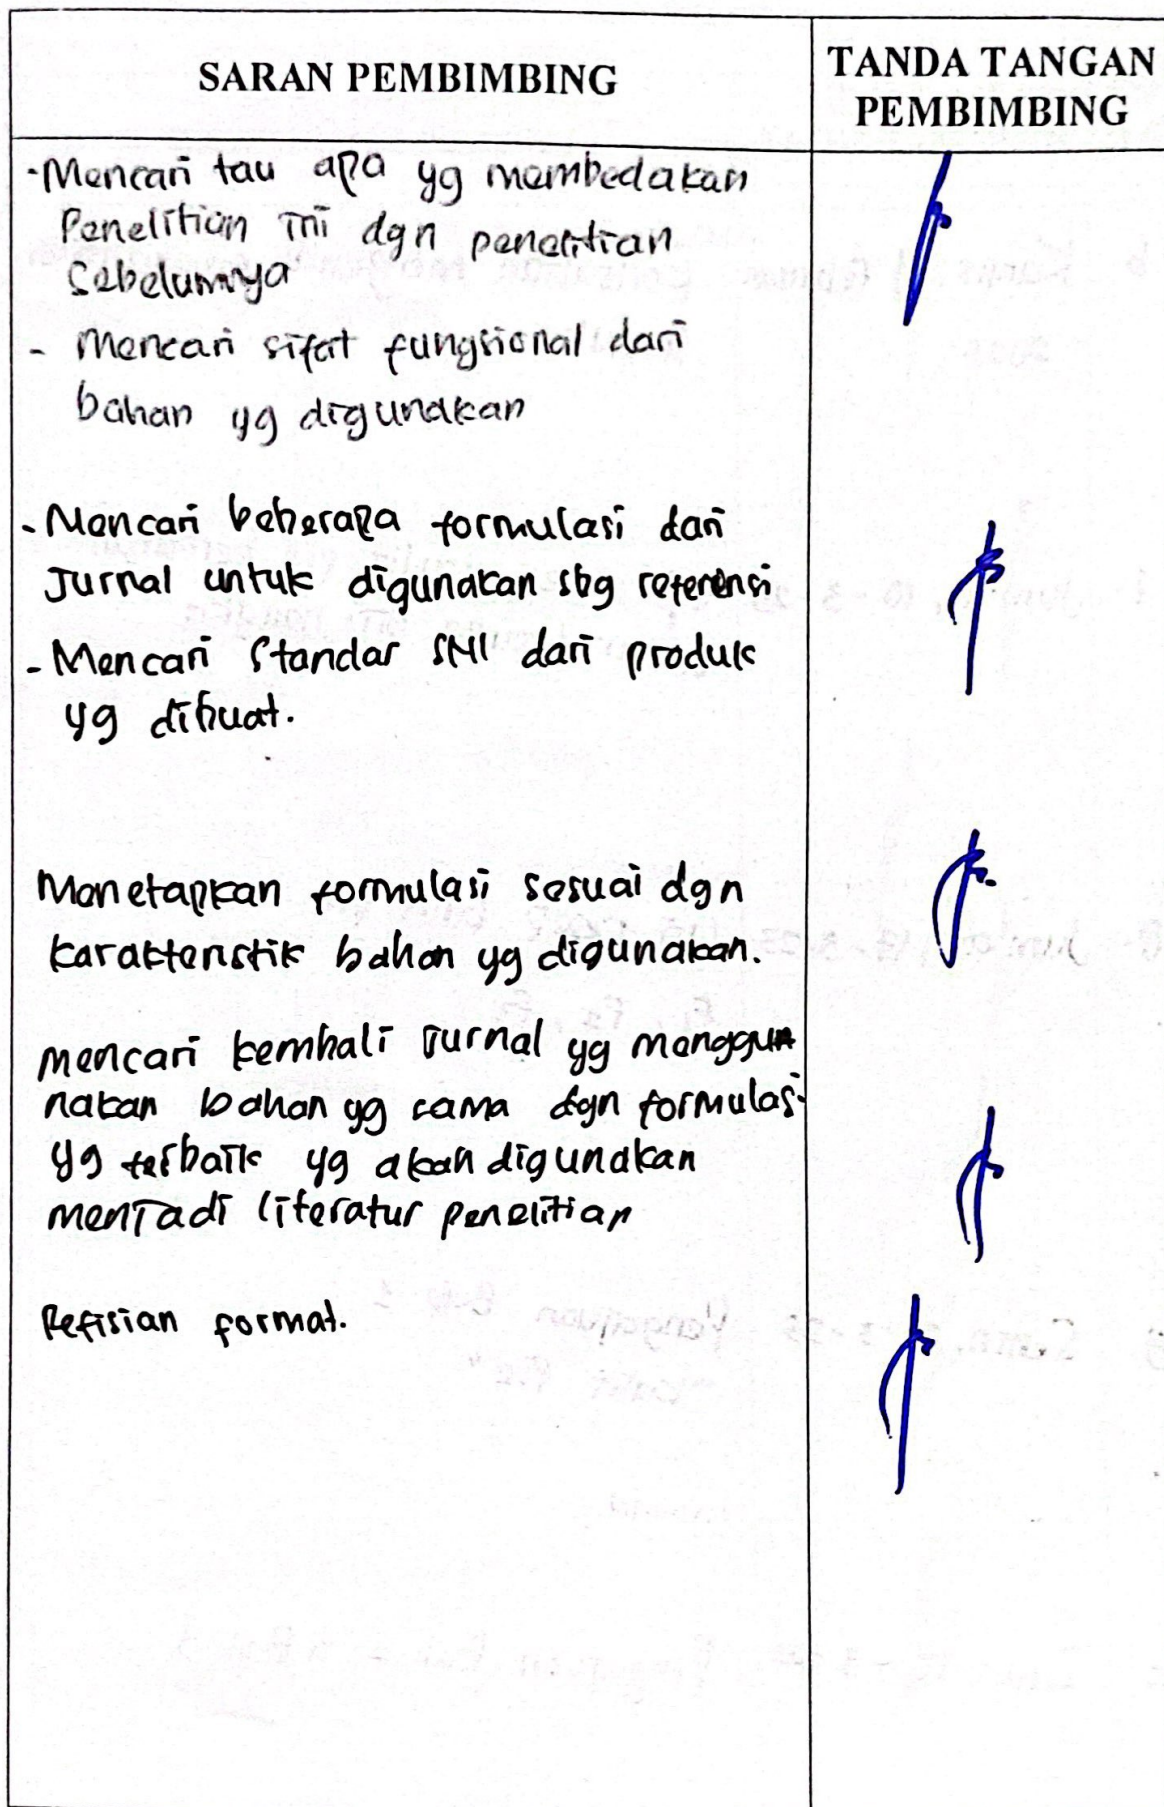 SARAN PEMBIMBING
TANDA TANGAN
PEMBIMBING
- Mencari tau apa yg membedakan
Penelitian ini dgn penelitian
Sebelumnya
- Mencari sifat fungsional dari
bahan yg digunakan
- Mencari beberapa formulasi dari
Jurnal untuk digunakan sbg referensi
- Mencari Standar SNI dari produk
yg dibuat.
Menetapkan formulasi sesuai dgn
karakteristik bahan yg digunakan.
Mencari kembali Jurnal yg menggun
nakan bahan yg sama dgn formulasi
yg terbaik yg akan digunakan
menjadi literatur penelitian
Refisian format.